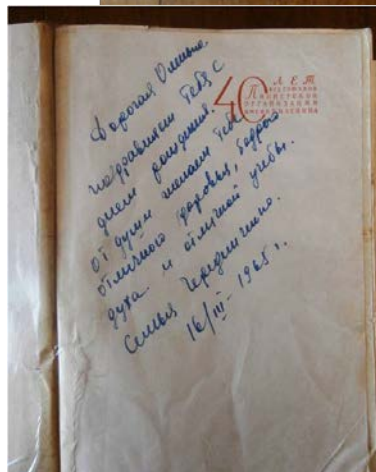 40 ЛЕТ
ВСЕСОЮЗНОЙ
ПИОНЕРСКОЙ
ОРГАНИЗАЦИИ
ИМЕНИ В.И.ЛЕНИНА
Дорогая
поздравляем тебя с
днём рождения.
От души желаем тебе
отличного здоровья, бодрого
духа и отличной учебы.
Семья Чередниченко.
16/III-1965 г.